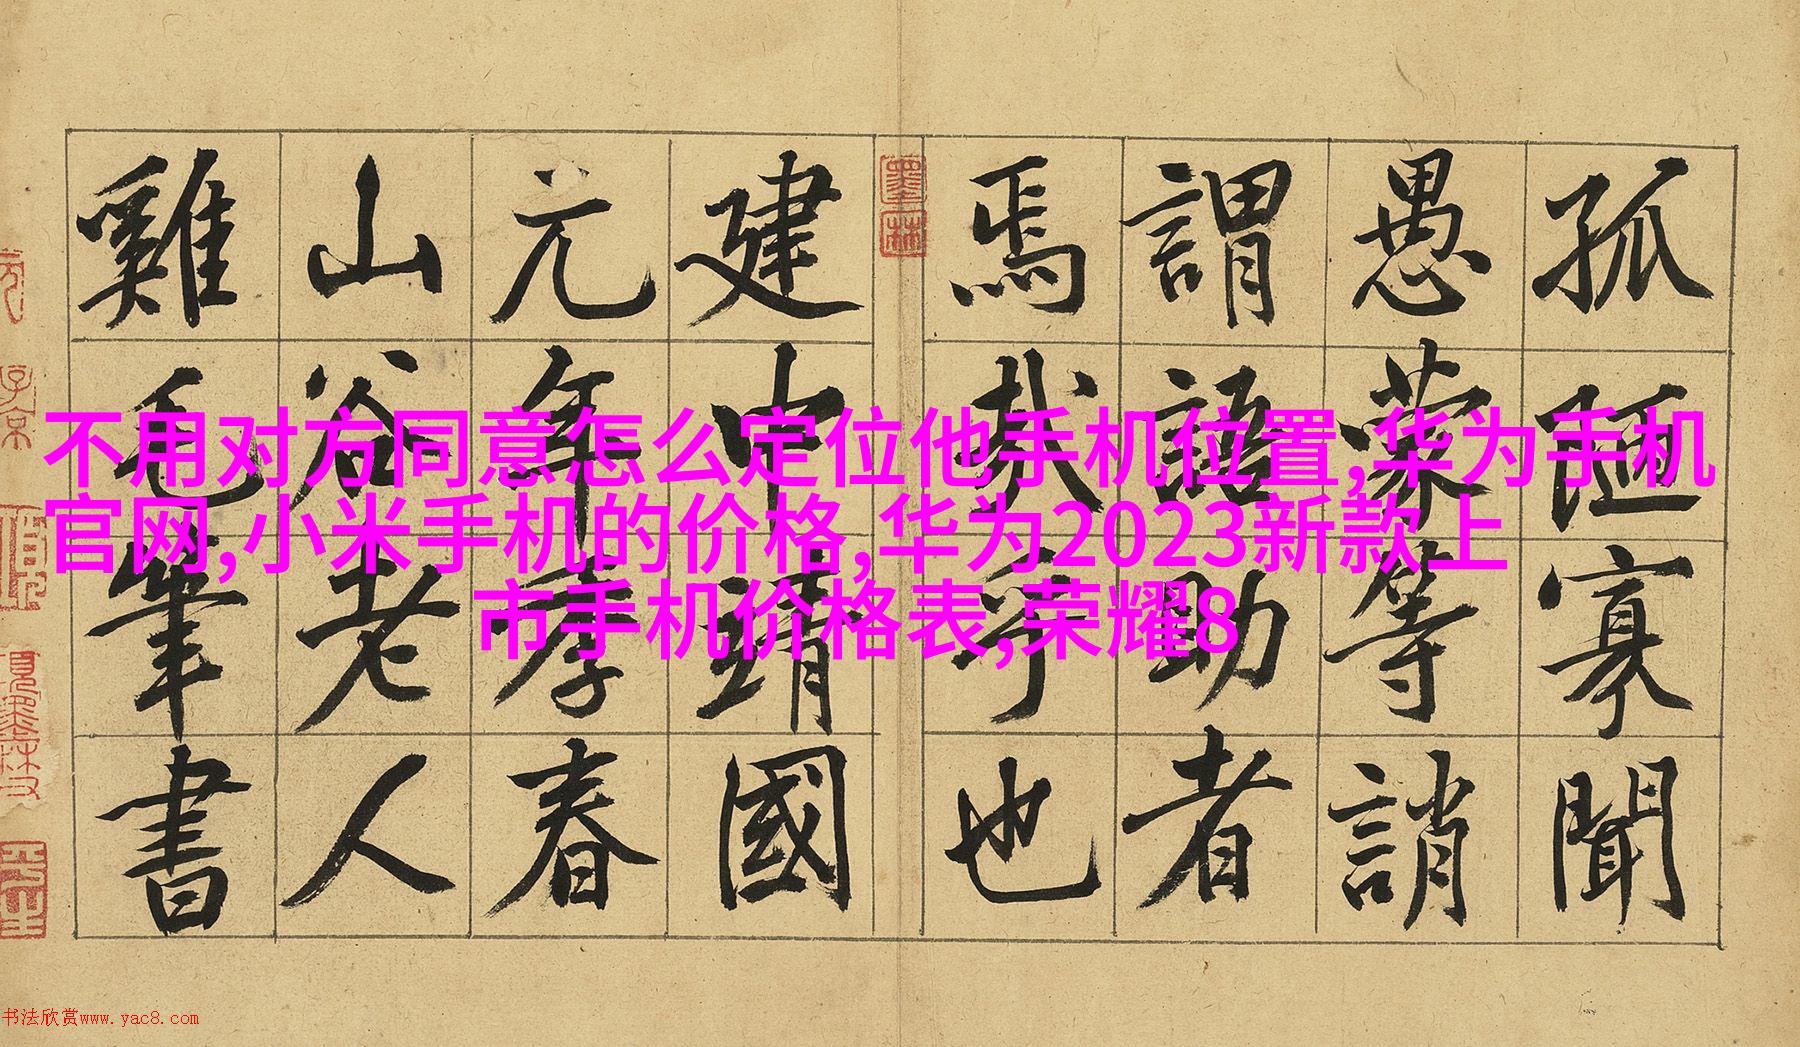 孤陋寡聞
愚蒙等誚
謂語助者
焉哉乎也
墨林
建中靖國
元年季春
山谷老人
雞毛筆書
不用对方同意怎么定位他手机位置,华为手机
官网,小米手机的价格,华为2023新款上
市手机价格表,荣耀8
书法欣赏www.yac8.com